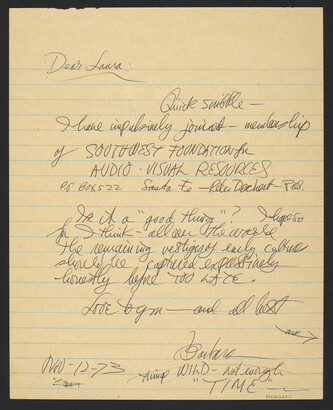 Dear Laura:
Quick scribble —
I have impulsively joined — membership
of SOUTHWEST FOUNDATION for
AUDIO-VISUAL RESOURCES
P.O. BOX 522 Santa Fe — Pres.
Is it a "good thing"? I hope so
for I think — all over the world
the remaining vestiges of early cultures
should be captured
honestly before TOO LATE.
Love to you — and all best
over →
Barbara
Nov-12-73
WILD — not enough
"TIME"